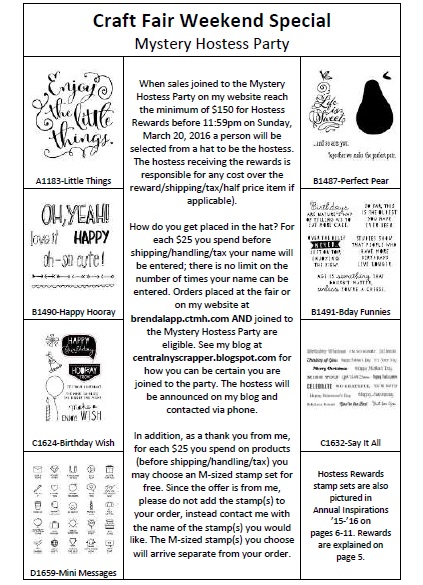 Craft Fair Weekend Special
Mystery Hostess Party
Enjoy
the little
things.
A1183-Little Things
OH, YEAH!
love it HAPPY
oh-so cute!
B1490-Happy Hooray
HAPPY
Birthday
HOORAY
make a
WISH
C1624-Birthday Wish
D1659-Mini Messages
When sales joined to the Mystery
Hostess Party on my website reach
the minimum of $150 for Hostess
Rewards before 11:59pm on Sunday,
March 20, 2016 a person will be
selected from a hat to be the hostess.
The hostess receiving the rewards is
responsible for any cost over the
reward/shipping/tax/half price item if
applicable).
How do you get placed in the hat? For
each $25 you spend before
shipping/handling/tax your name will
be entered; there is no limit on the
number of times your name can be
entered. Orders placed at the fair or
on my website at
brendalapp.ctmh.com AND joined to
the Mystery Hostess Party are
eligible. See my blog at
centralnyscrapper.blogspot.com for
how you can be certain you are
joined to the party. The hostess will
be announced on my blog and
contacted via phone.
In addition, as a thank you from me,
for each $25 you spend on products
(before shipping/handling/tax) you
may choose an M-sized stamp set for
free. Since the offer is from me,
please do not add the stamp(s) to
your order, instead contact me with
the name of the stamp(s) you would
like. The M-sized stamp(s) you choose
will arrive separate from your order.
Life is
Sweet
...and so are you.
Together we make the perfect pair.
B1487-Perfect Pear
Birthdays
ARE NATURE'S WAY
OF TELLING US TO
EAT MORE CAKE.
SO FAR, THIS
IS THE OLDEST
YOU HAVE
EVER BEEN.
OVER THE HILL?
NEVER!
ENJOYING
THE VIEW
STUDIES SHOW
THAT PEOPLE WHO
HAVE MORE
BIRTHDAYS
LIVE LONGER.
AGE IS something THAT
DOESN'T MATTER,
unless YOU'RE A CHEESE.
B1491-Bday Funnies
Merry Christmas
CELEBRATE
C1632-Say It All
Hostess Rewards
stamp sets are also
pictured in
Annual Inspirations
'15-'16 on
pages 6-11. Rewards
are explained on
page 5.